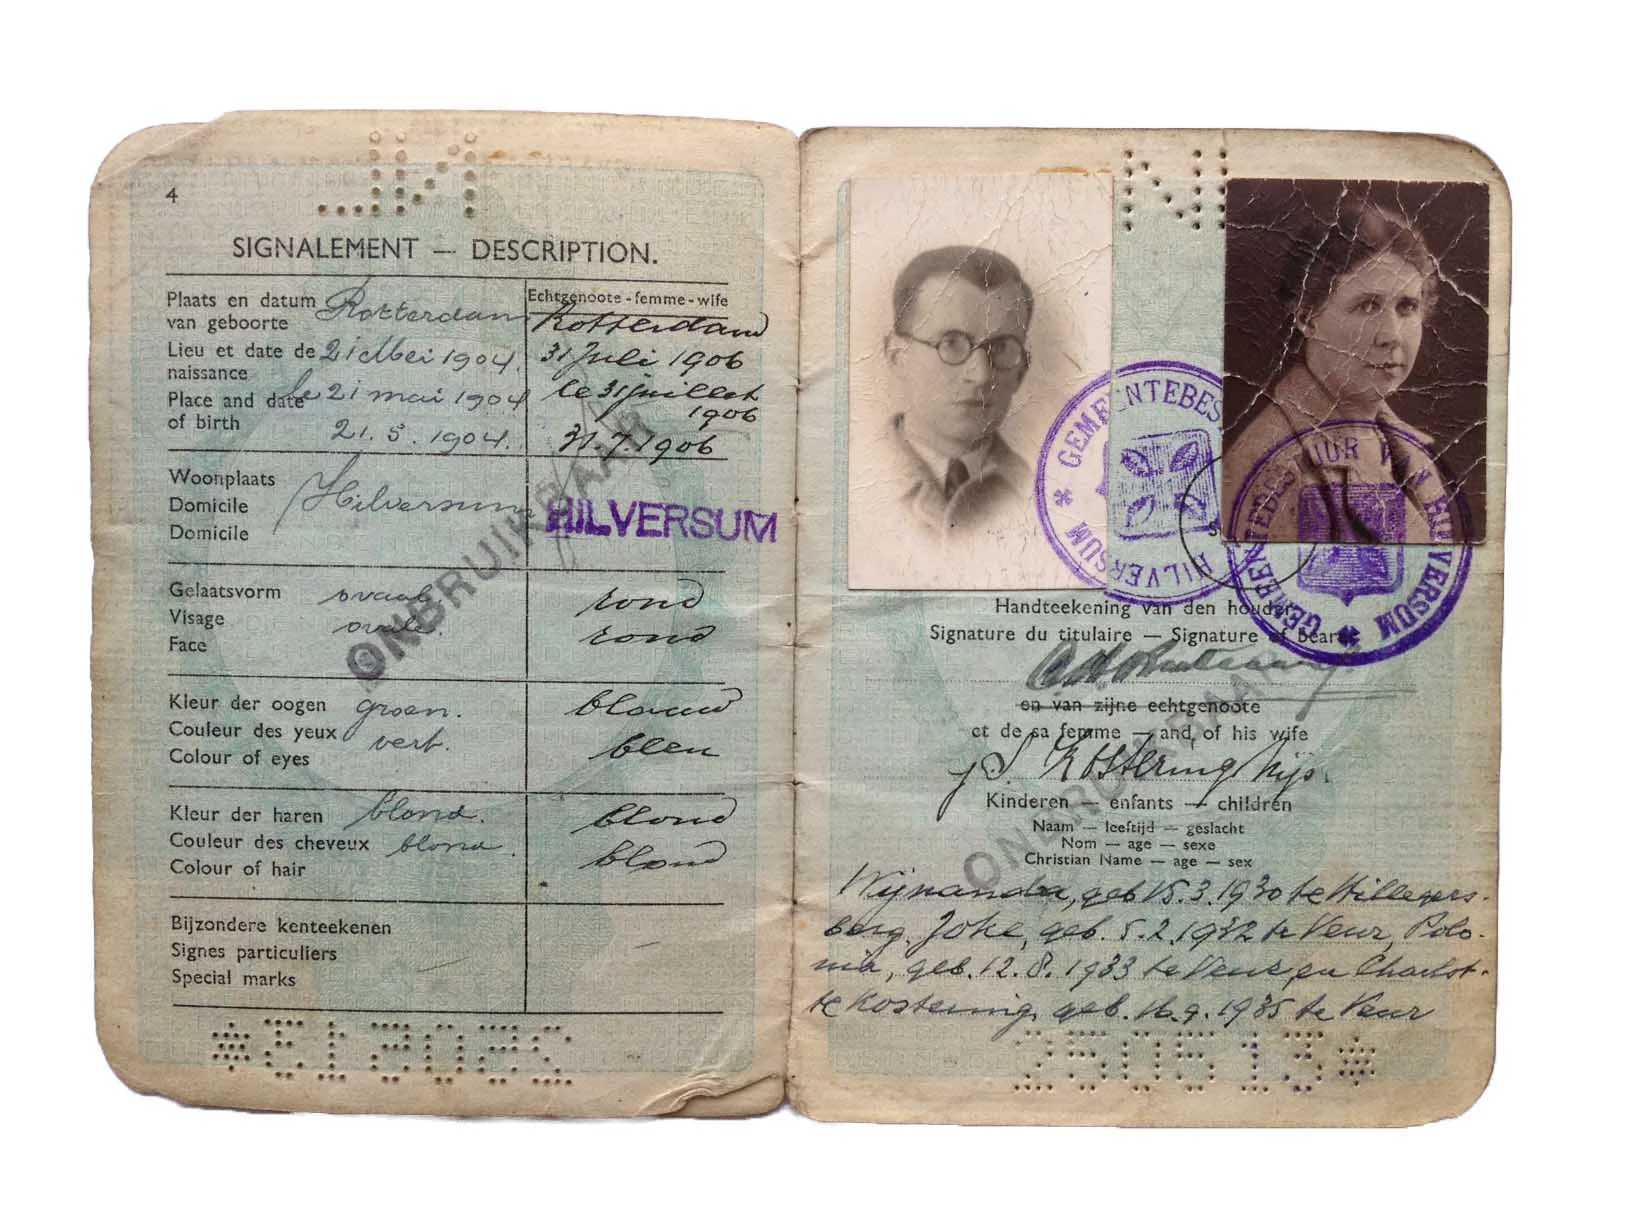 4
SIGNALEMENT — DESCRIPTION.
Echtgenoote - femme - wife
Plaats en datum Rotterdam Rotterdam
van geboorte
Lieu et date de 21 Mei 1904. 31 Juli 1906
naissance
Place and date le 21 mai 1904 le 31 juillet
1906
of birth 21.5.1904. 31.7.1906
Woonplaats
Domicile Hilversum HILVERSUM
Domicile
ONBRUIKBAAR
Gelaatsvorm ovaal rond
Visage ovale. rond
Face
Kleur der oogen groen. blauw
Couleur des yeux vert. bleu
Colour of eyes
Kleur der haren blond. blond
Couleur des cheveux blond. blond
Colour of hair
Bijzondere kenteekenen
Signes particuliers —
Special marks —
*E1505 2
N
GEMEENTEBES HILVERSUM *
GEMEENTEBESTUUR VAN HILVERSUM *
Handteekening van den houder
Signature du titulaire — Signature of bearer
en van zijne echtgenoote
et de sa femme — and of his wife
J S. Kostering Nijs.
Kinderen — enfants — children
Naam — leeftijd — geslacht
Nom — age — sexe
Christian Name — age — sex
ONBRUIKBAAR
Wijnanda, geb 15.3.1930 te Hillegers-
berg, Joke, geb. 5.2.1932 te Veur, Polo-
nia, geb. 12.8.1933 te Veur en Charlot-
te Kostering, geb. 16.9.1935 te Veur
250513*